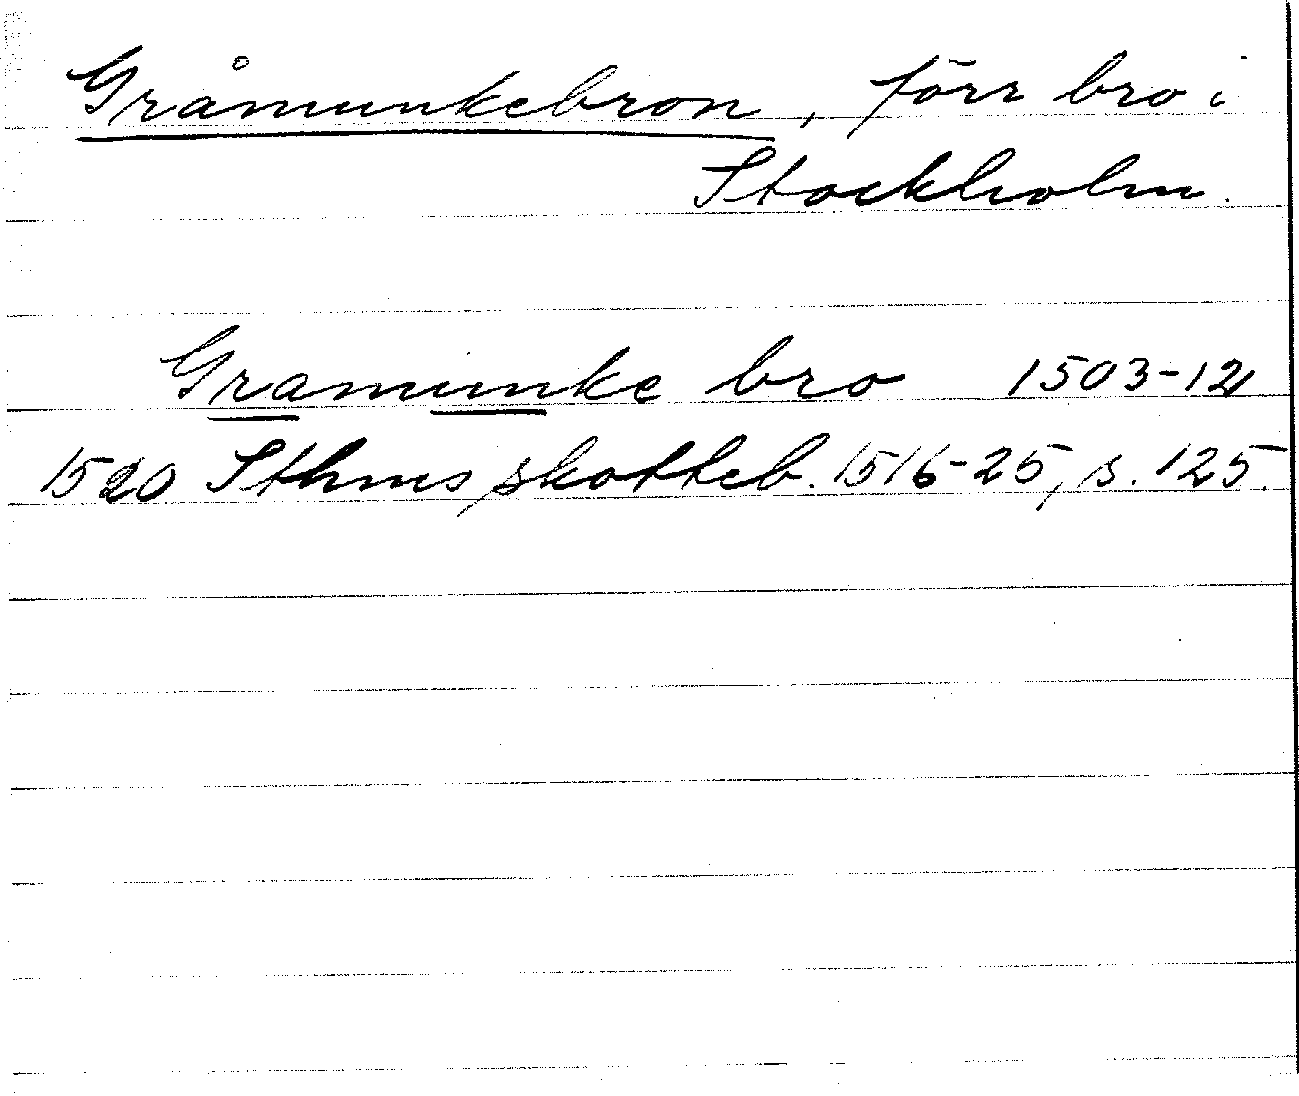 Gråmunkebron, förr bro i
Stockholm.
Gramunke bro 1503-121
1520 Sthms skotteb. 1516-25, s. 125.